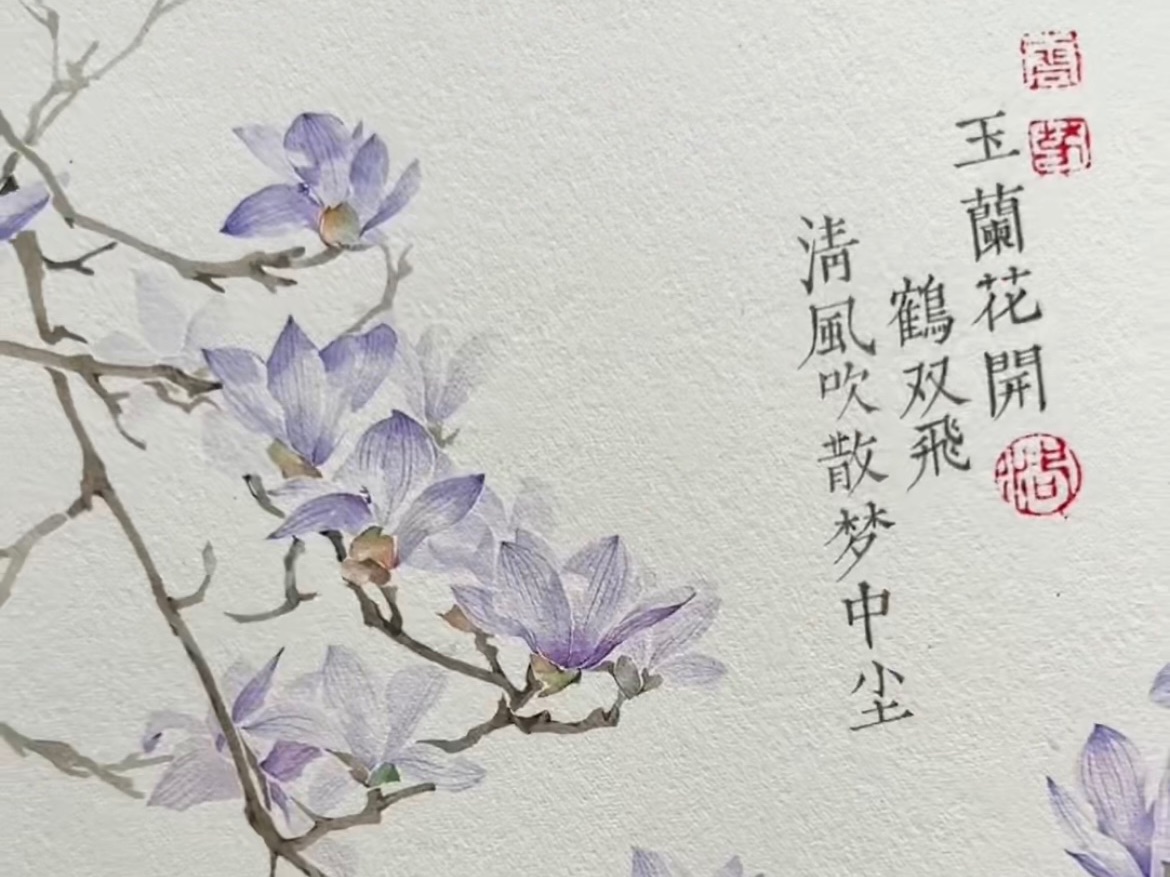 玉蘭花開
鶴双飛
清風吹散梦中尘